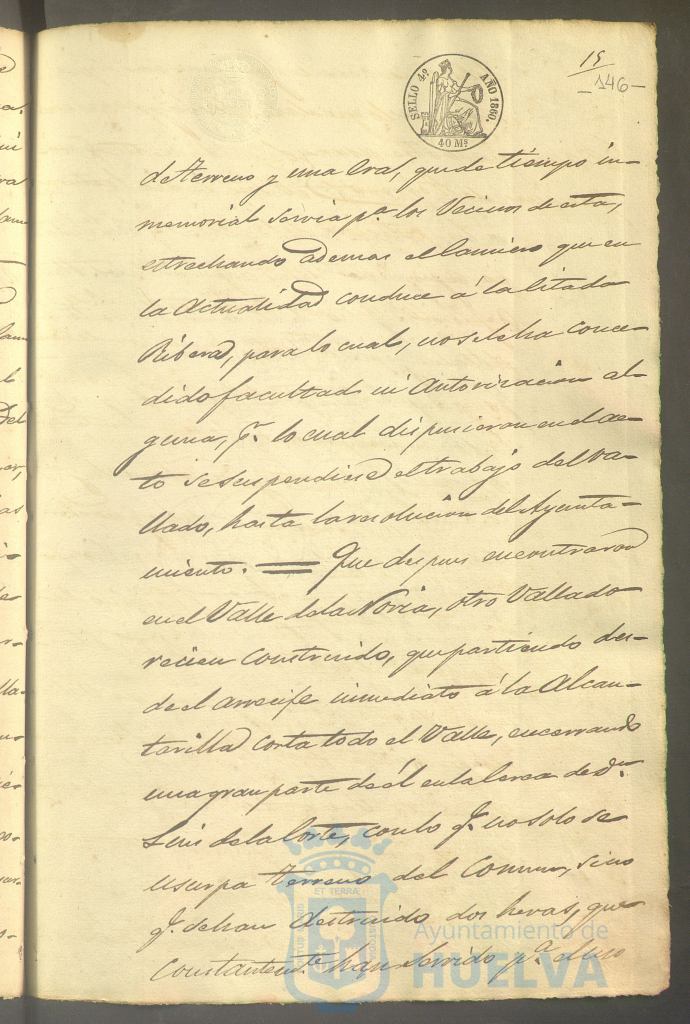 15
-146-
SELLO 4º AÑO 1860.
40 Ms
de terreno y una Era, que de tiempo in-
memorial servia pª los Vecinos de esta,
estrechando ademas el Camino que en
la Actualidad conduce á la Citada
Ribera, para lo cual, no se le ha conce-
dido facultad ni Autorizacion al-
guna, pr. lo cual dispusieron en el ac-
to se suspendiese el trabajo del Va-
llado, hasta la resolucion del Ayunta-
miento. = Que despues encontraron
en el Valle de la Noria, otro Vallado
recien Construido, que partiendo des-
de el arrecife inmediato á la Alcan-
tarilla corta todo el Valle, encerrando
una gran parte de él en la Cerca de Dn.
Luis de la Corte, con lo q. no solo se
usurpa terreno del Comun, sino
q. se han destruido dos heras, que
constantemte. han servido pª el uso
Ayuntamiento de
HUELVA